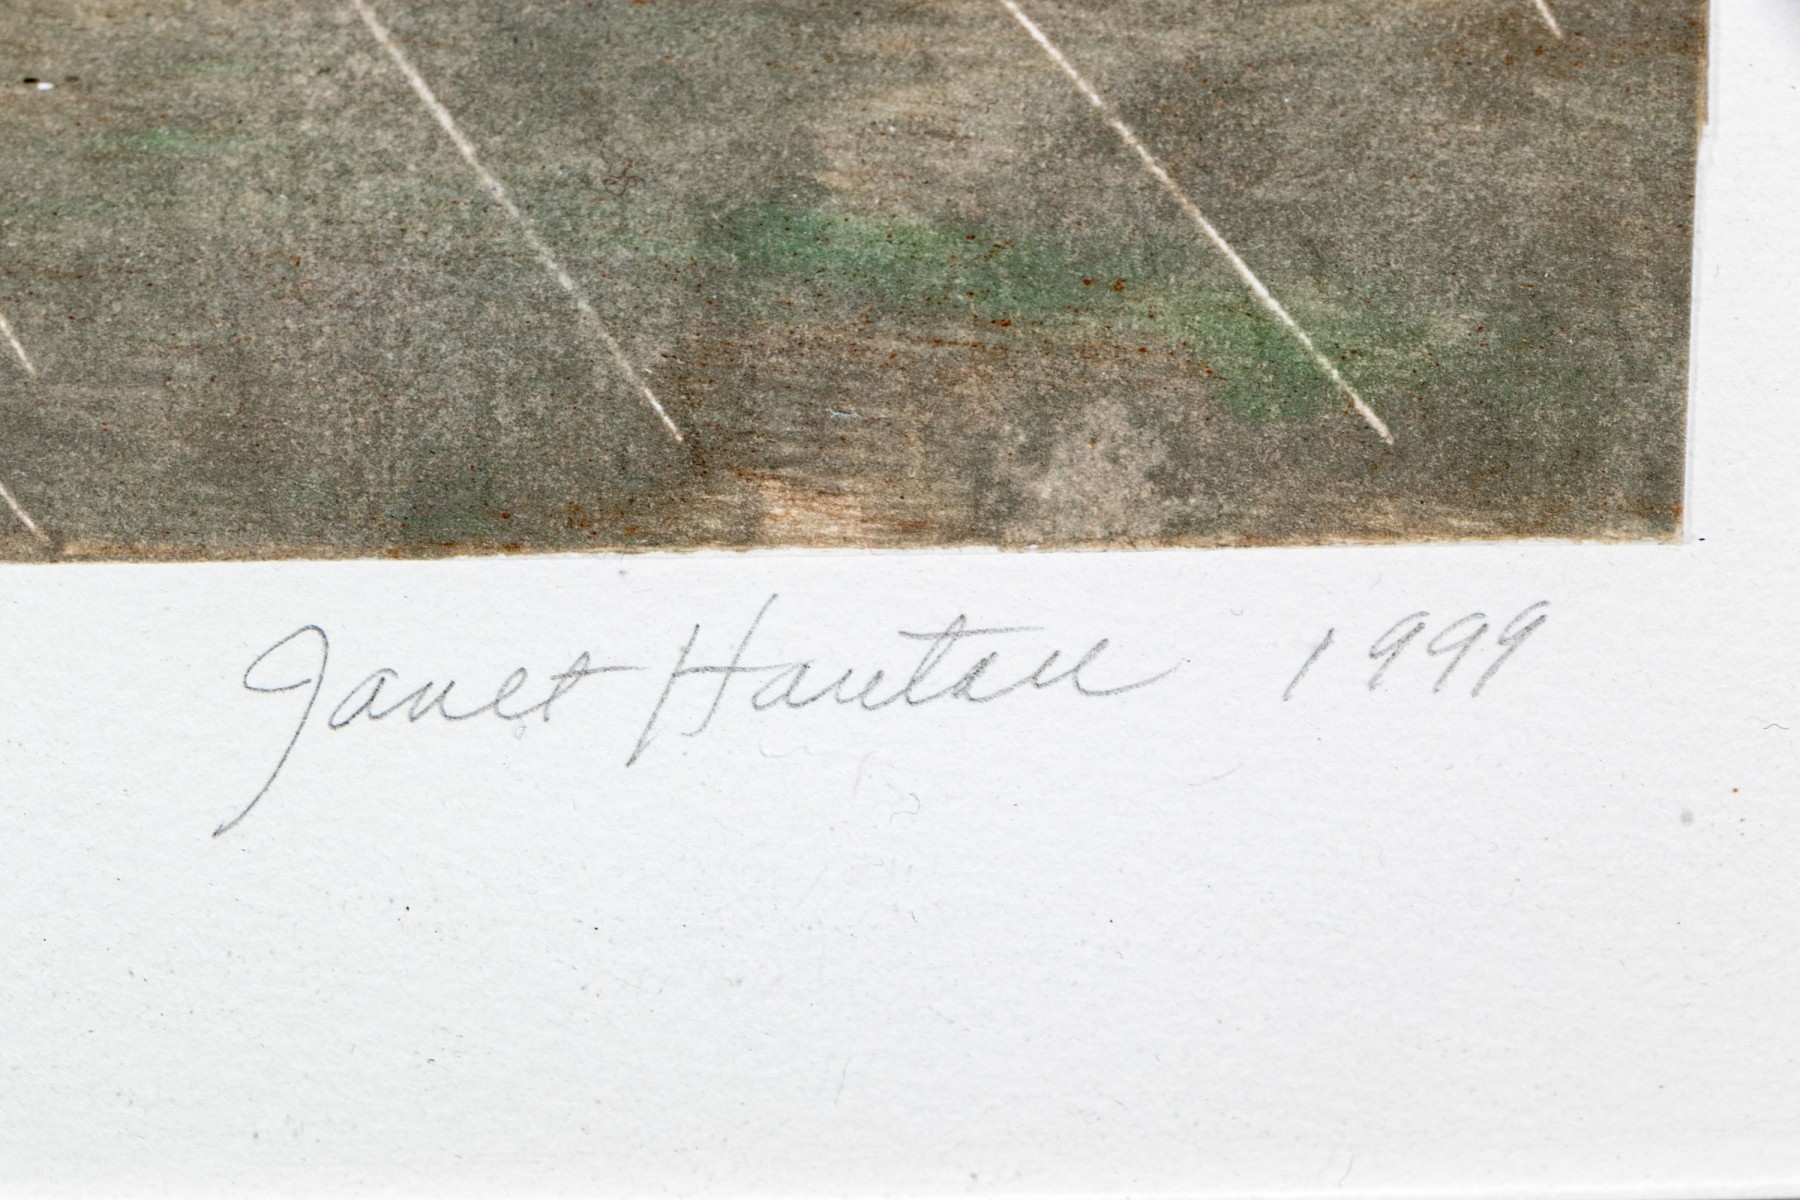 Janet Hautau 1999